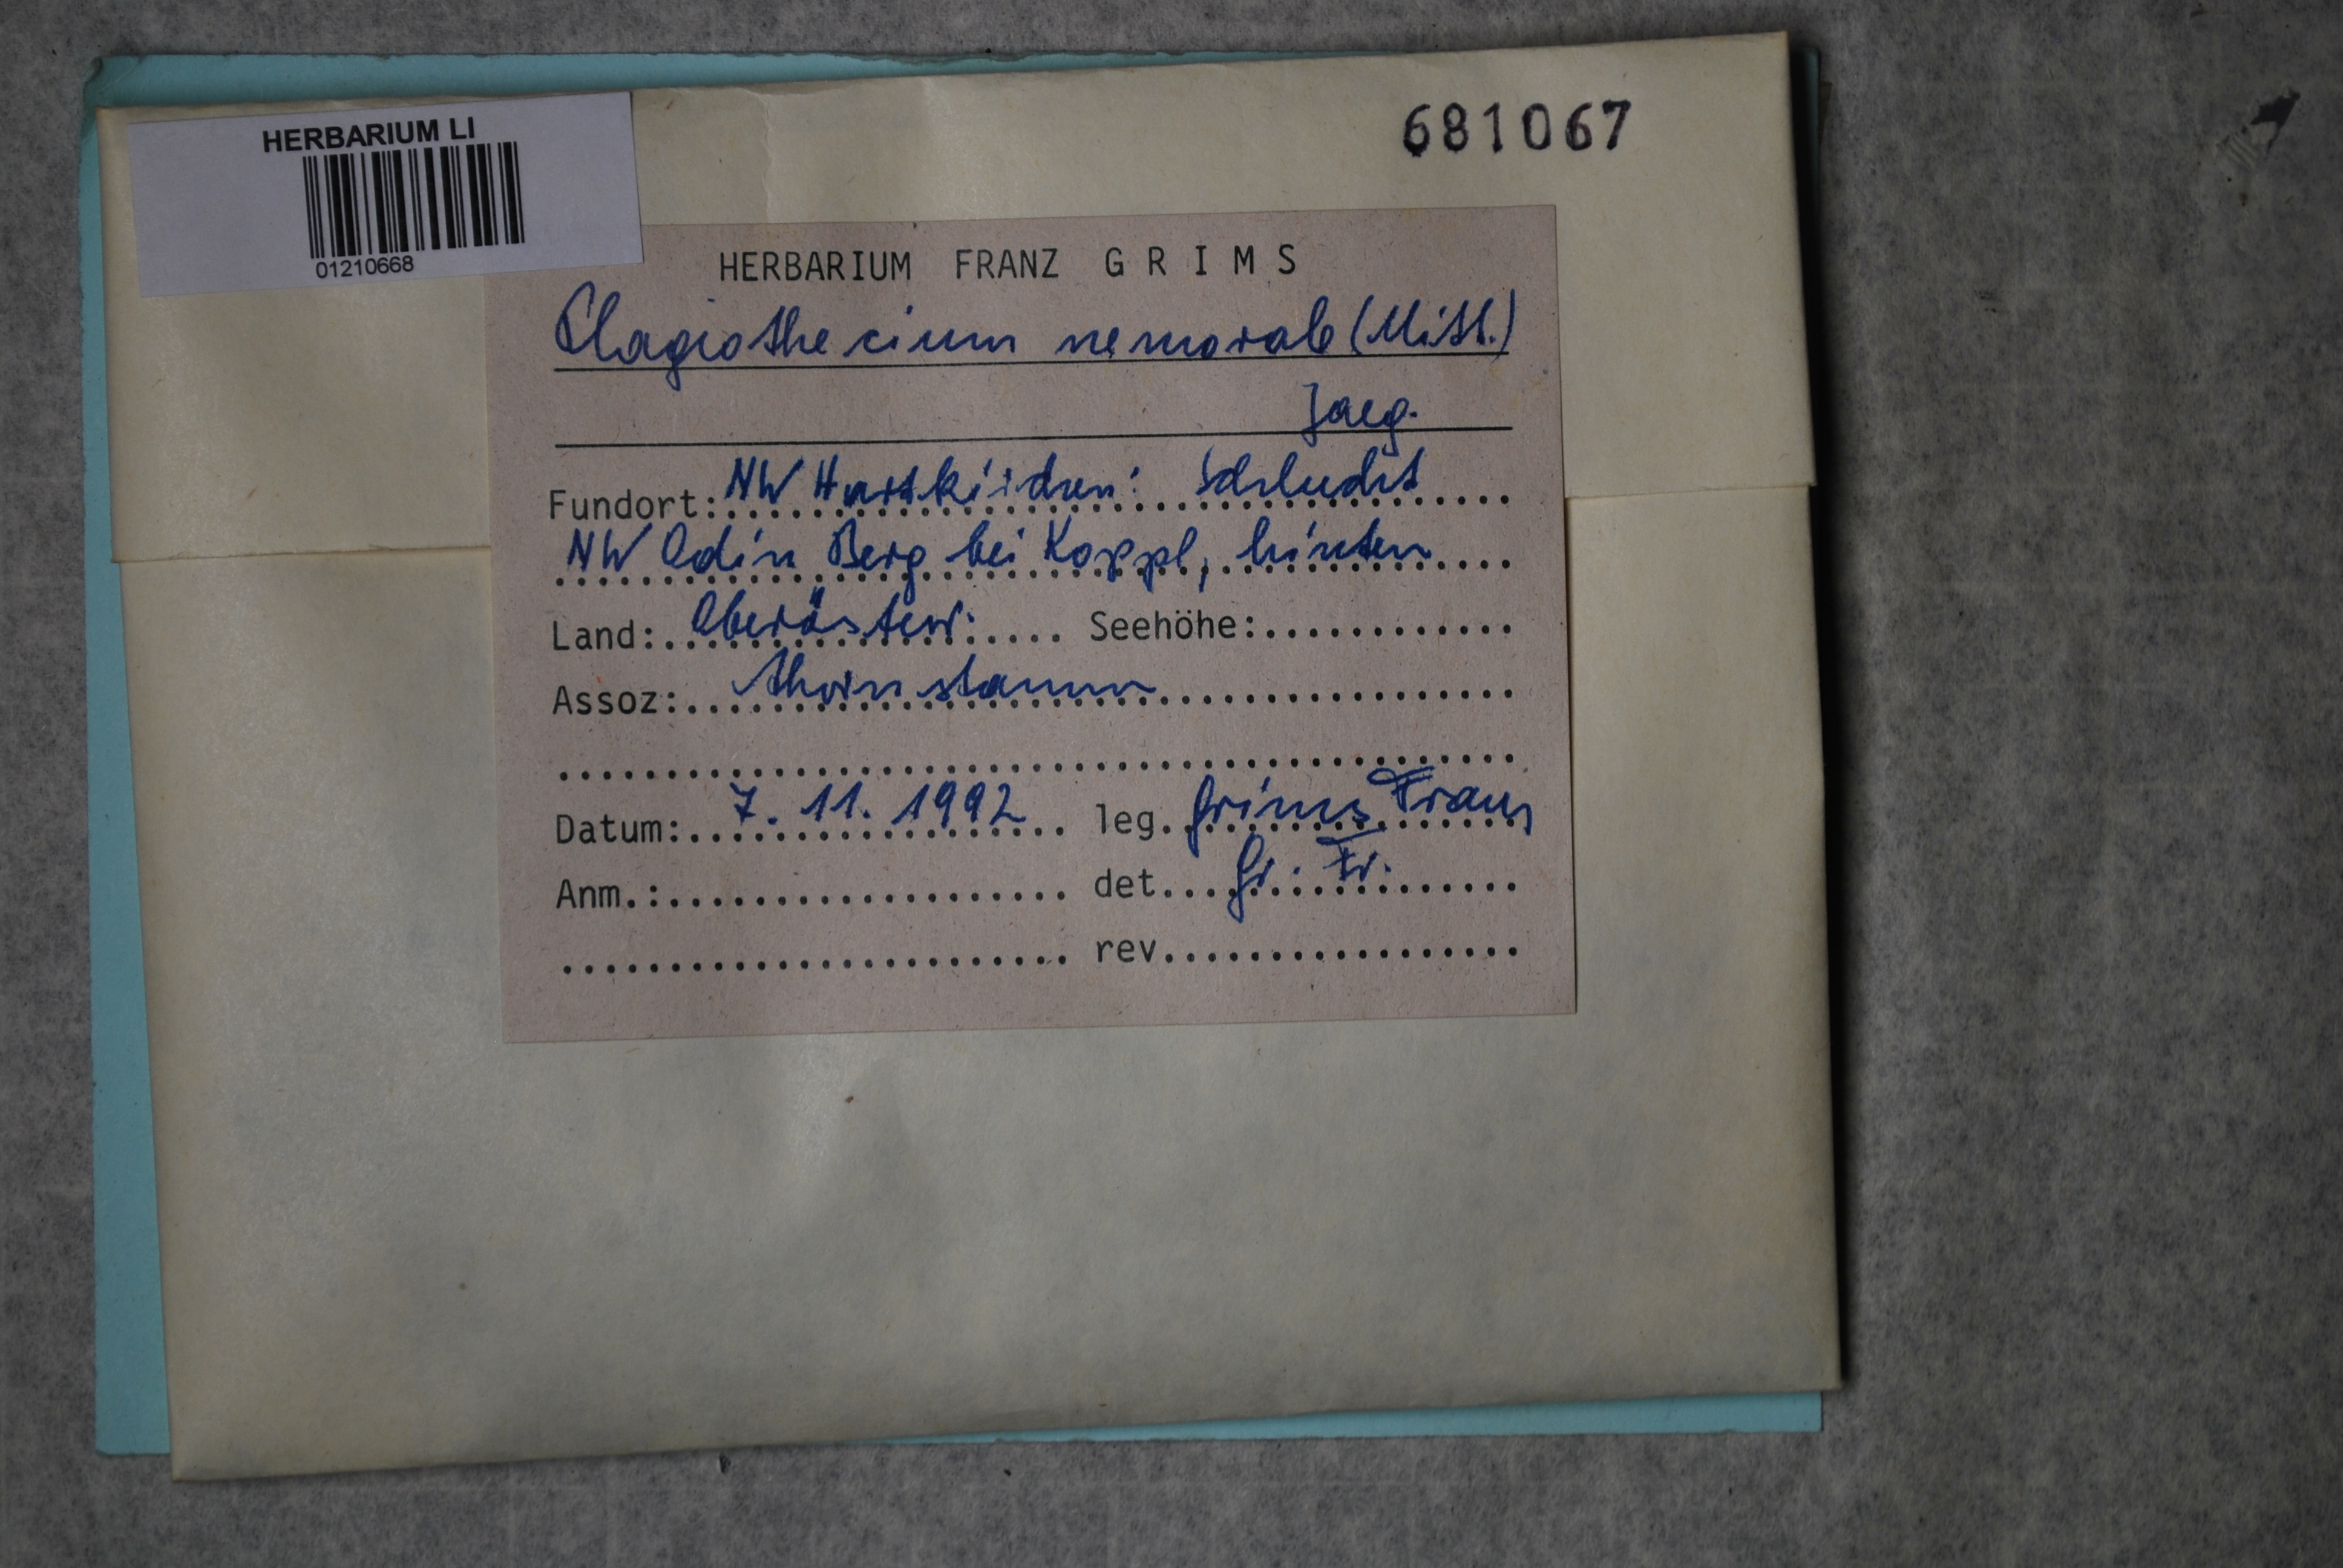 HERBARIUM LI
01210668
681067
HERBARIUM FRANZ GRIMS
Plagiothecium nemorale (Mitt.)
Jaeg.
Fundort: NW Hartkirchen: Schlucht
NW Odin Berg bei Koppl, hinten
Land: Oberösterr. Seehöhe:
Assoz: Ahornstamm
Datum: 7. 11. 1992 leg. Grims Franz
Anm.: det. Gr. Fr.
rev.